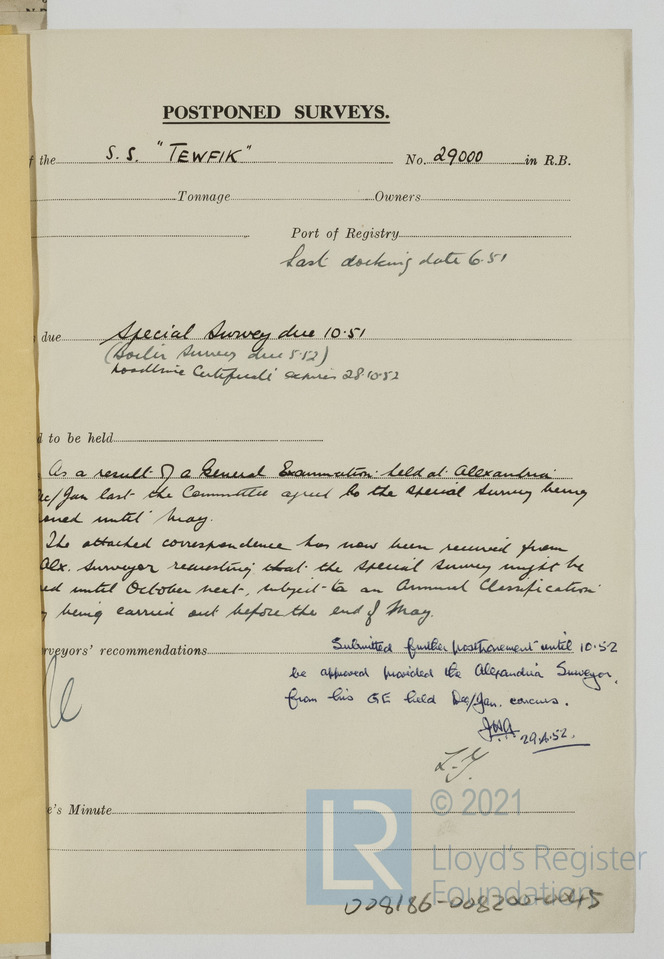 POSTPONED SURVEYS.
f the S.S. "TEWFIK" No. 29000 in R.B.
Tonnage Owners
Port of Registry
Last docking date 6.51
due Special Survey due 10.51
(Boiler Survey due 5.52)
Loadline Certificate expires 28 10.52
d to be held
As a result of a General Examination held at Alexandria
ec/Jan last the Committee agreed to the special survey being
oned until May.
The attached correspondence has now been received from
Alx. Surveyor requesting that the special survey might be
ed until October next, subject to an Annual Classification
being carried out before the end of May.
rveyors' recommendations Submitted further postponement until 10.52
be approved provided the Alexandria Surveyor,
from his GE held Dec/Jan. concurs.
29.4.52.
e's Minute
LR
© 2021
Lloyd's Register
Foundation
008186-008200-0045